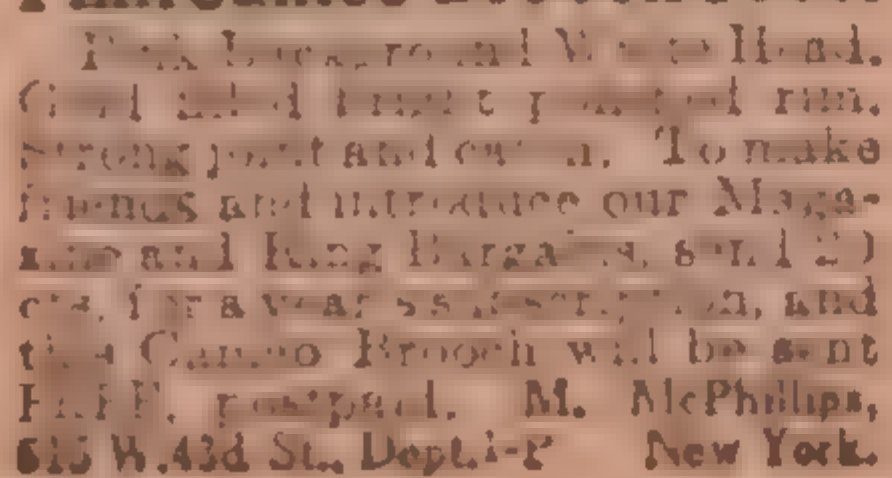 Pink Background White Head.
rim,
strong joint and catch. To make
friends and introduce our Maga-
zine and Ring Bargains, send 20
cts. for a years subscription, and
this Cameo Brooch will be sent
FREE, postpaid. M. McPhillips,
615 W.43d St., Dept. New York.